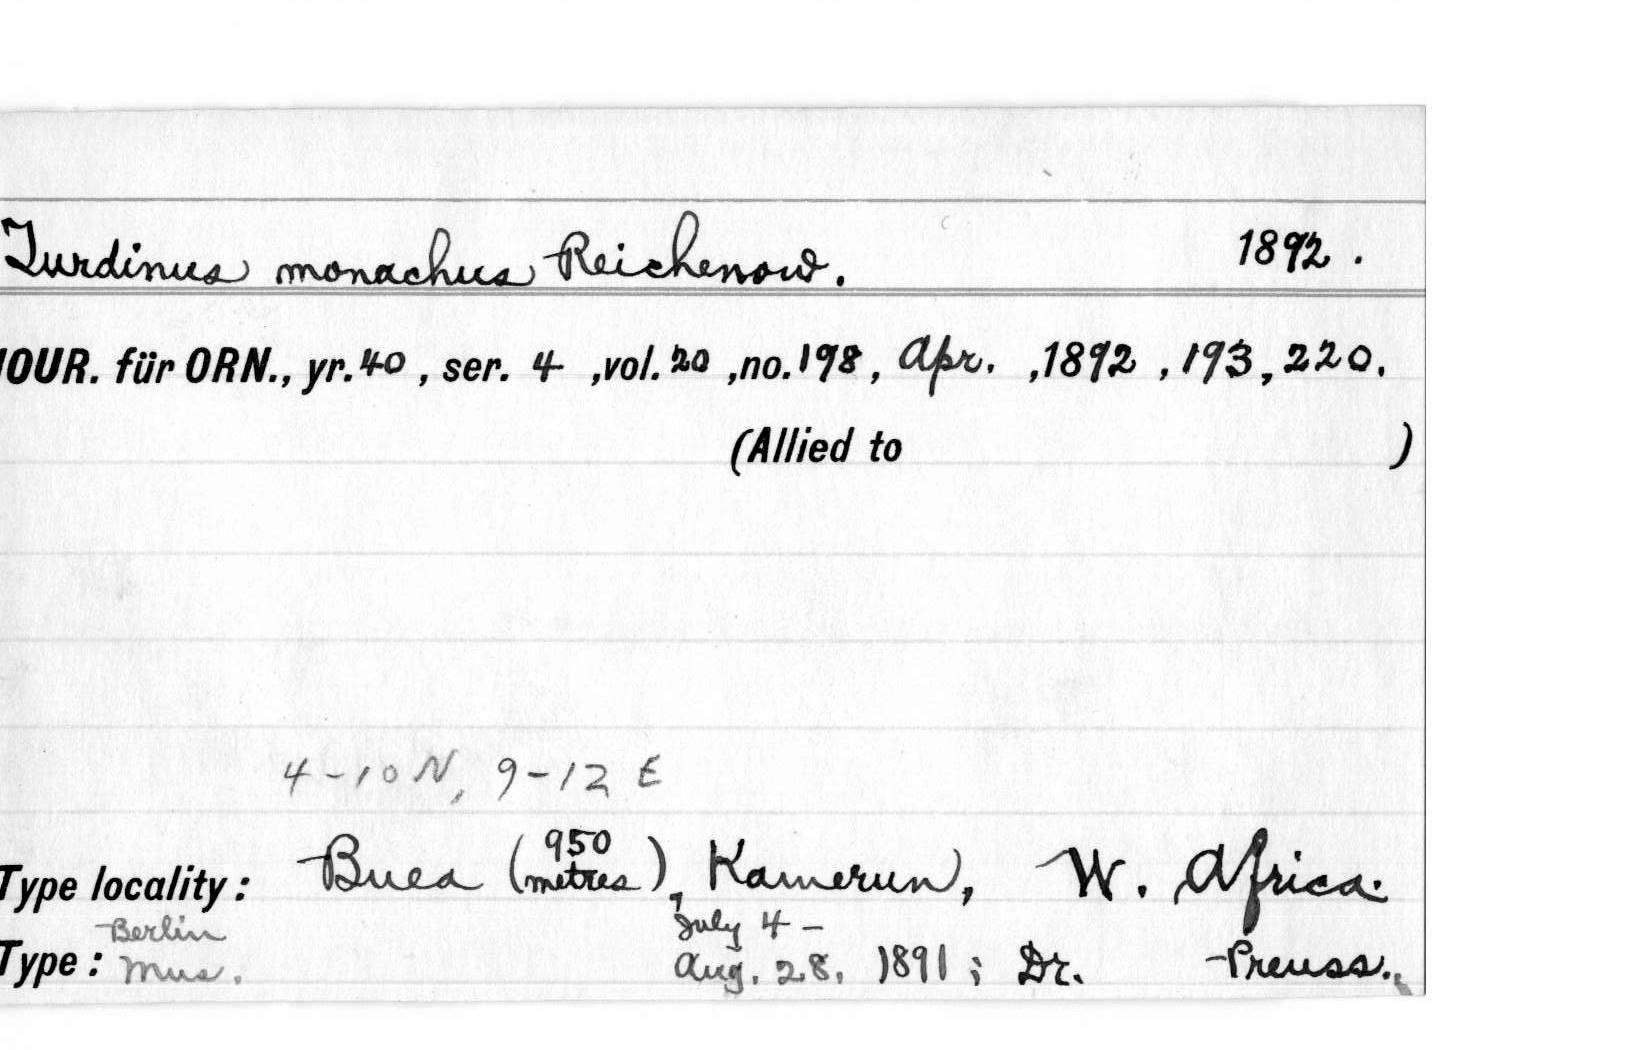 Turdinus monachus Reichenow. 1892.
JOUR. für ORN., yr. 40, ser. 4, vol. 20, no. 198, Apr., 1892, 193, 220.
(Allied to )
4-10 N, 9-12 E
Type locality: Buea (950 metres), Kamerun, W. Africa.
Type: Berlin Mus. July 4 - Aug. 28, 1891; Dr. Preuss.